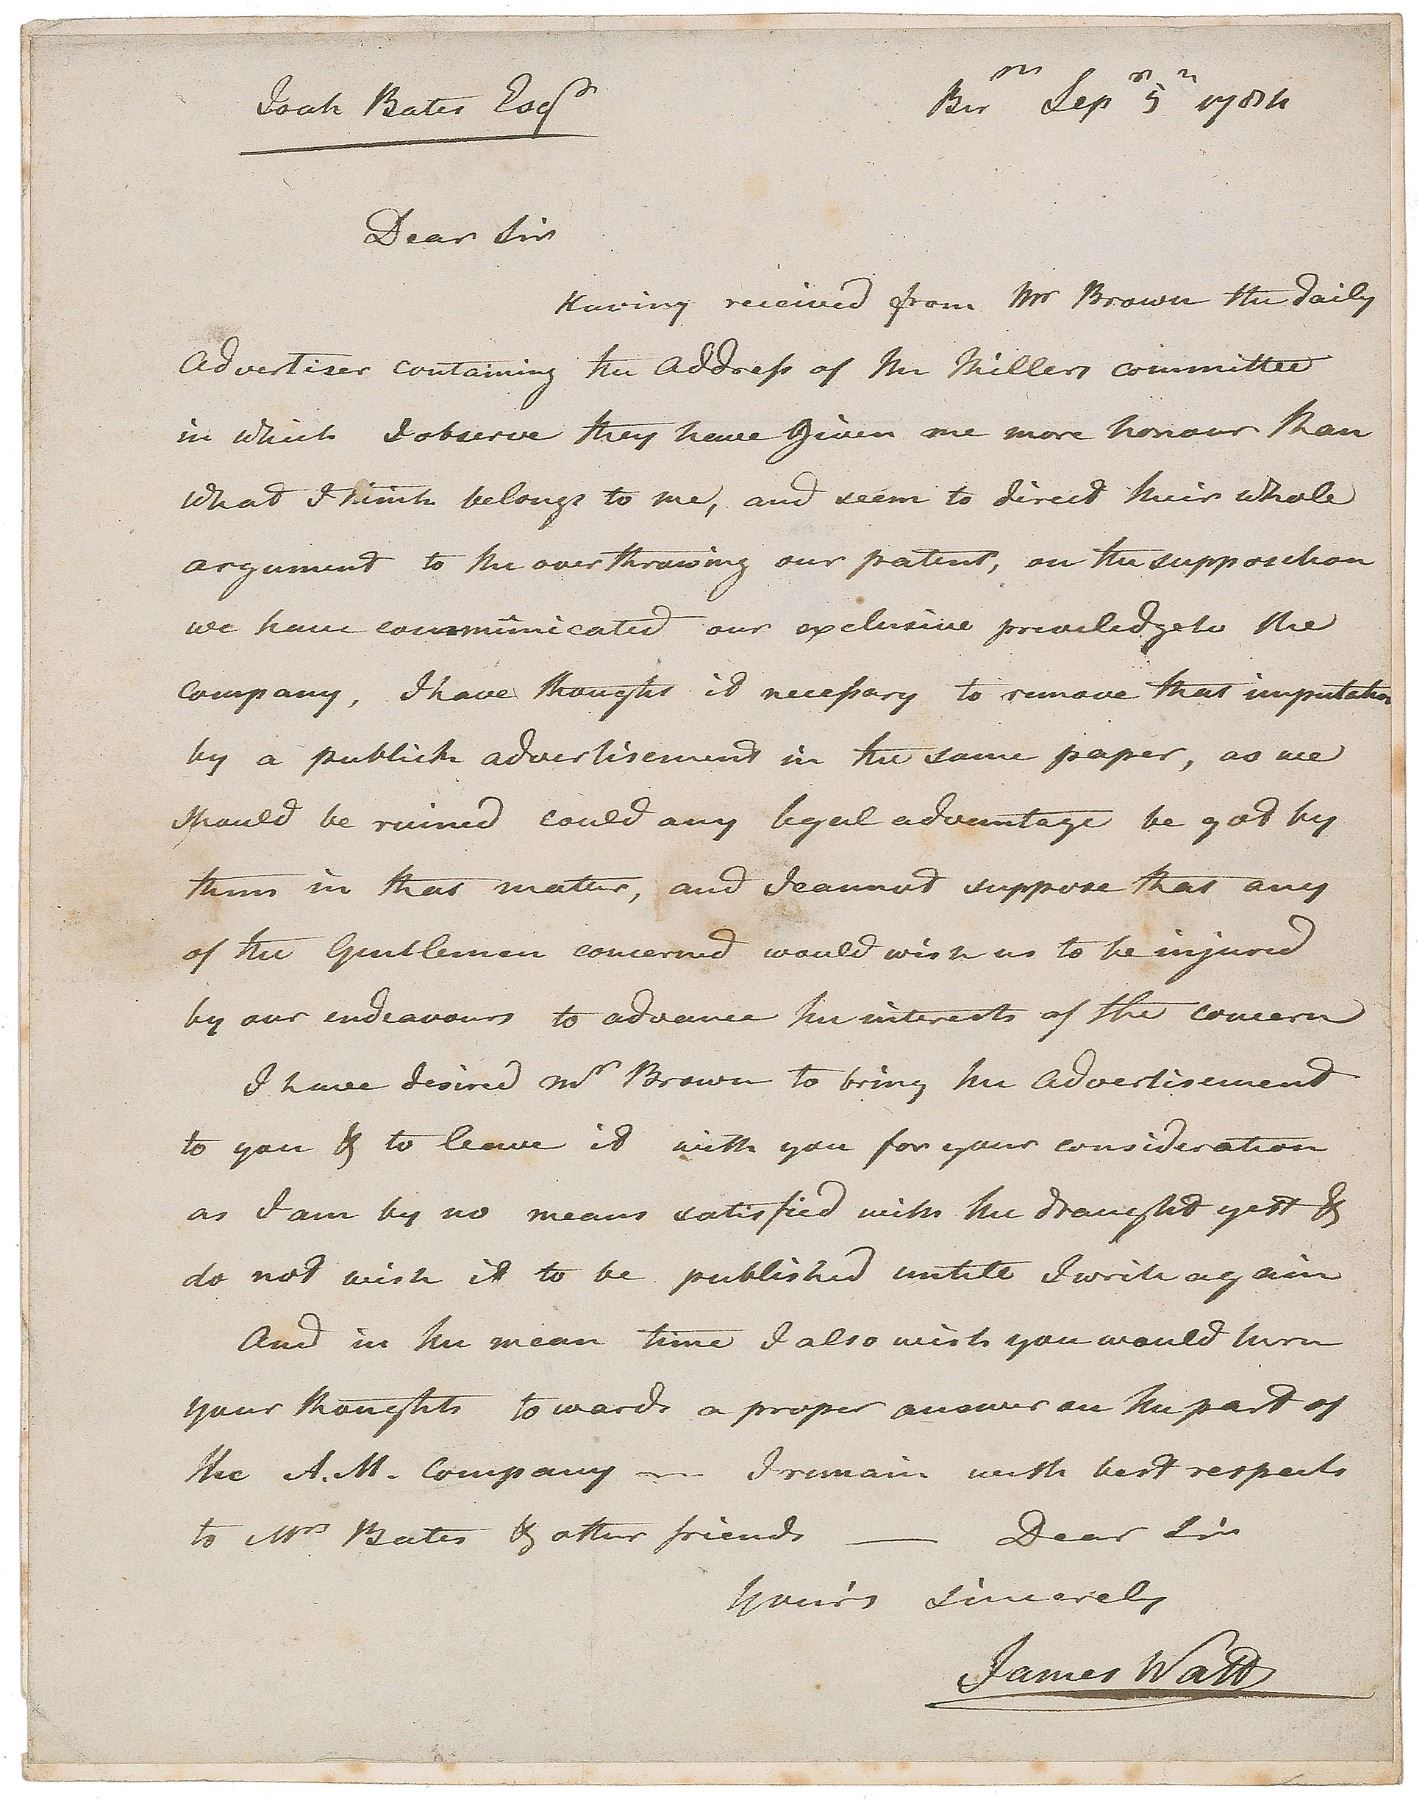 Joah Bates Esqr
Birm Sepr 5th 1784
Dear Sir
Having received from Mr Brown the daily
Advertiser containing the Address of the Millers committee
in which I observe they have Given me more honour than
what I think belongs to me, and seem to direct their whole
argument to the overthrowing our patent, on the supposition
we have communicated our exclusive priviledge to the
company, I have thought it necessary to remove that imputation
by a publick advertisement in the same paper, as we
should be ruined could any legal advantage be got by
them in that matter, and I cannot suppose that any
of the Gentlemen concerned would wish us to be injured
by our endeavours to advance the interests of the concern
I have desired Mr Brown to bring the Advertisement
to you & to leave it with you for your consideration
as I am by no means satisfied with the draught yett &
do not wish it to be published untill I write again
And in the mean time I also wish you would turn
your thoughts towards a proper answer on the part of
the A.M. Company — I remain with best respects
to Mrs Bates & other friends — Dear Sir
Your's Sincerely
James Watt